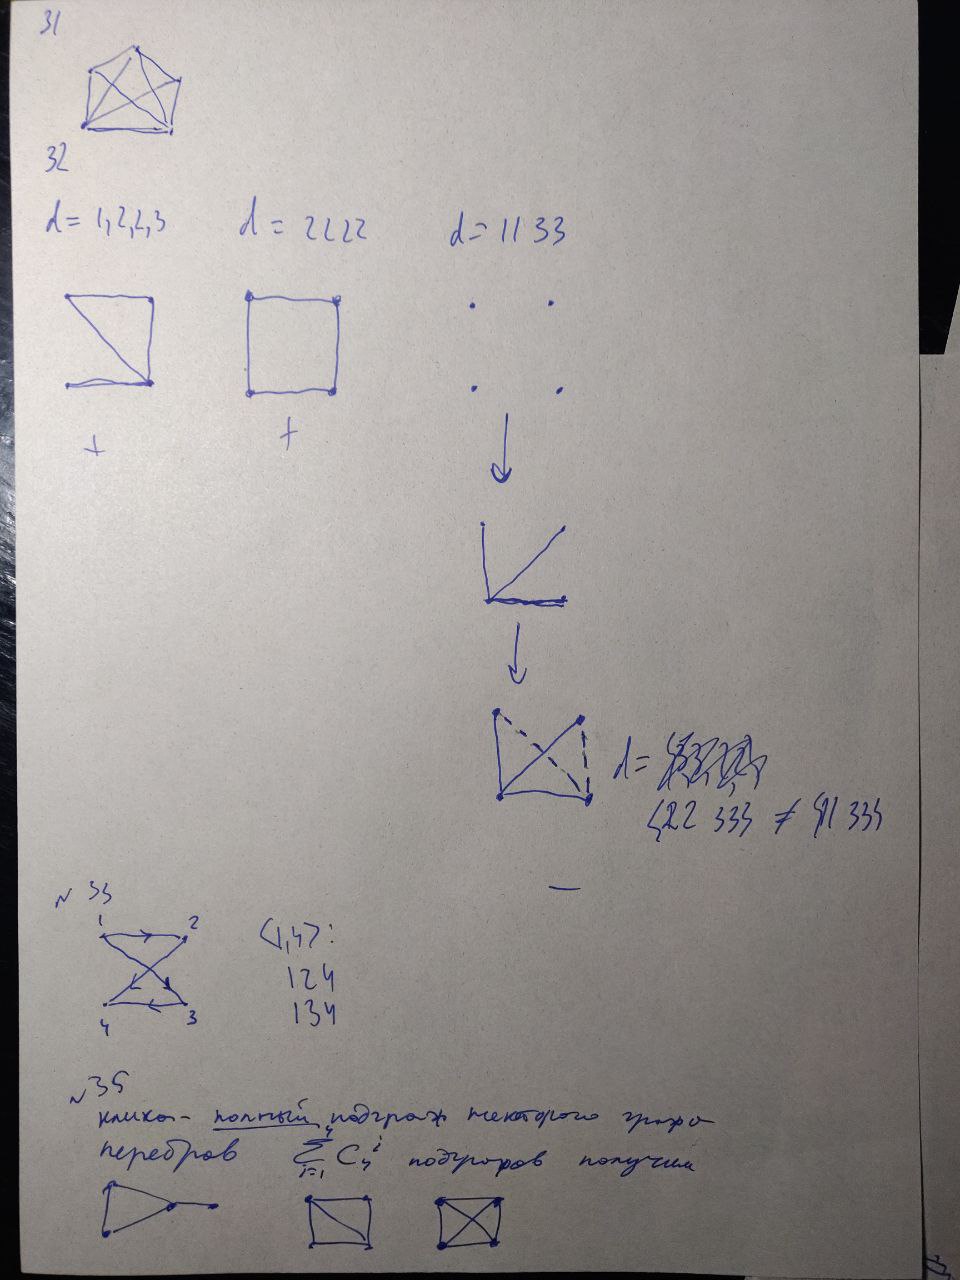 31
32
d = 1,2,2,3 d = 2222 d = 11 33
+ +
d =
{22 33} ≠ {11 33}
—
N 33
1 2 <1,4>:
124
4 3 134
N 35
клика - полный подграф некоторого графа
перебров ∑ i=1 4 C 4 i подграфов получим